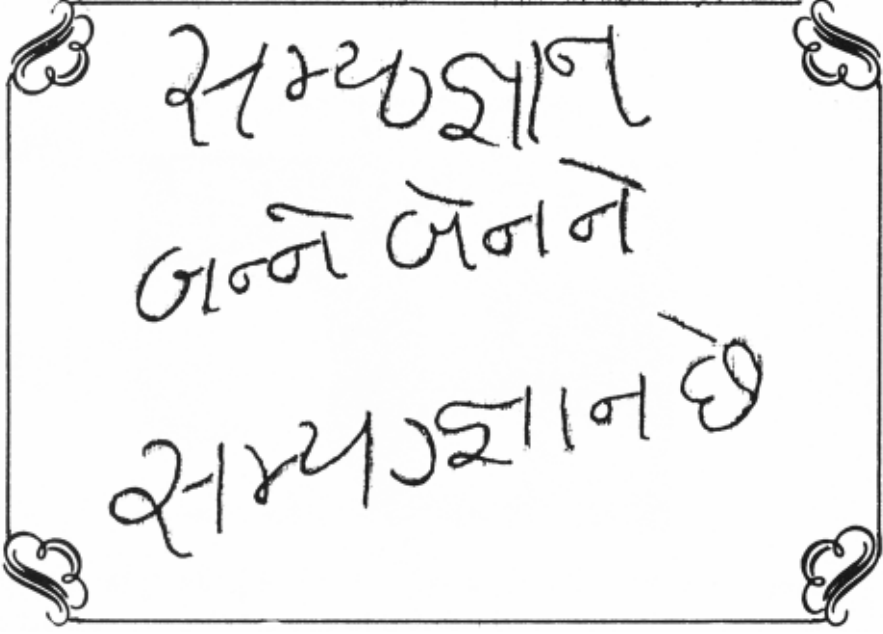 સમ્યગ્જ્ઞાન
બન્ને બેનને
સમ્યગ્જ્ઞાન છે